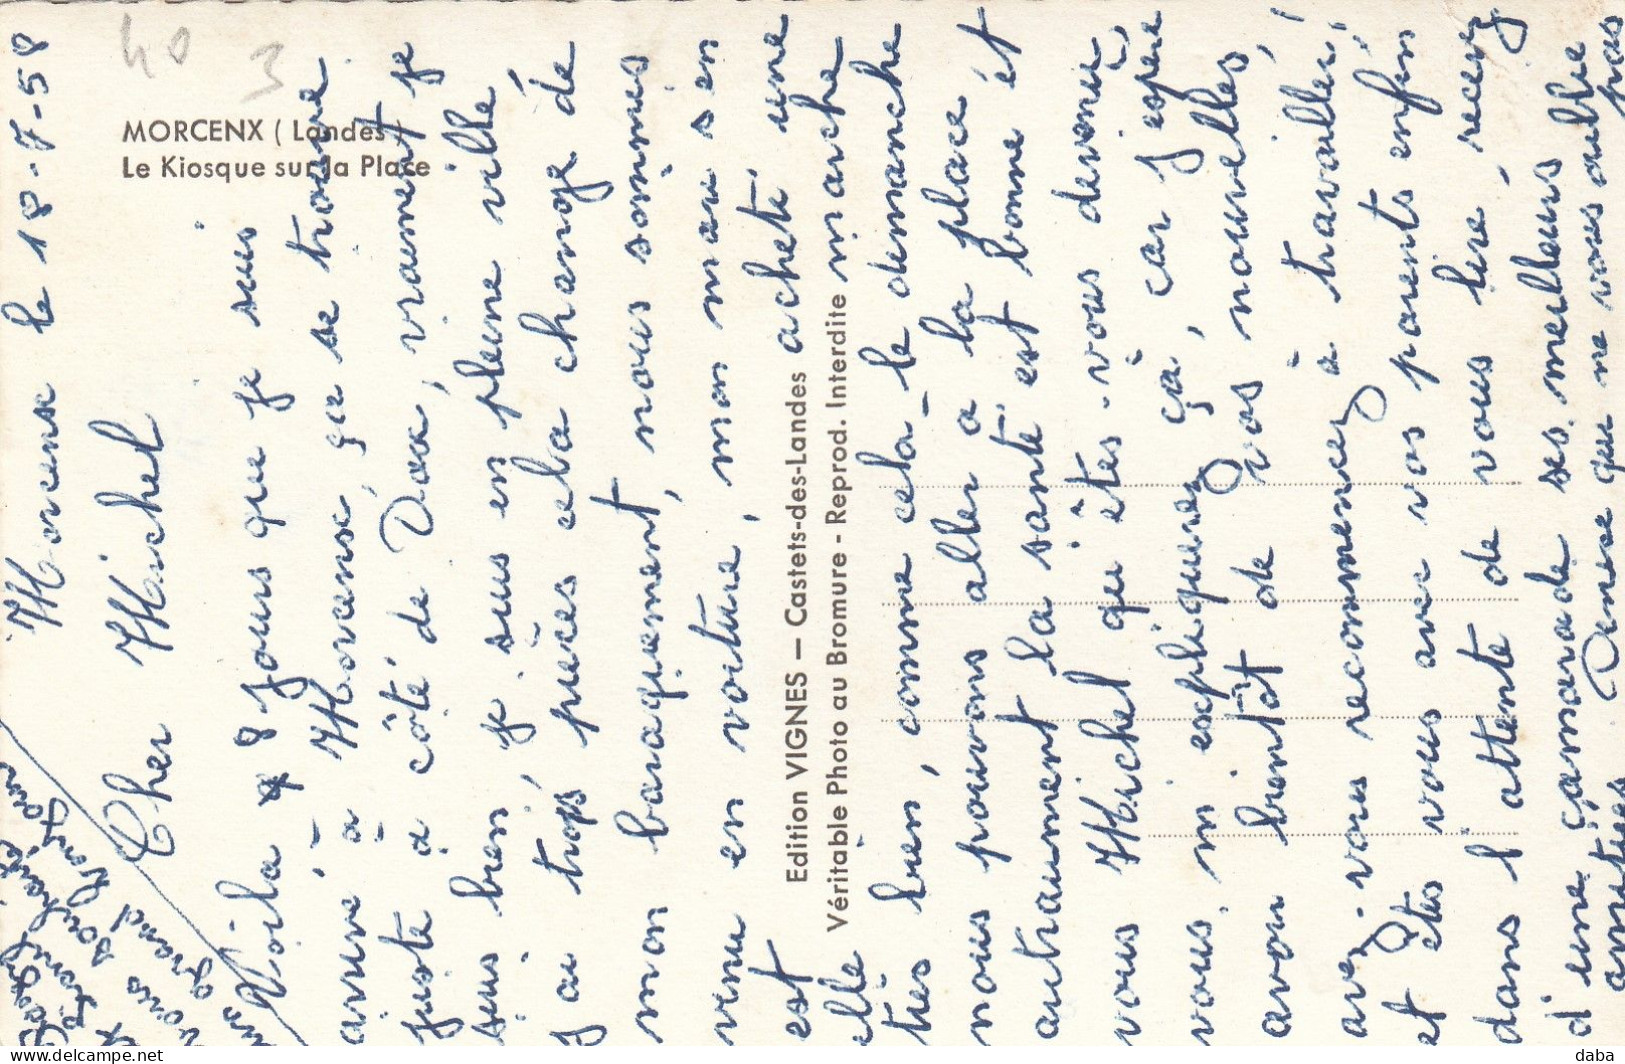 40
3
MORCENX ( Landes )
Le Kiosque sur la Place
Edition VIGNES — Castets-des-Landes
Véritable Photo au Bromure - Reprod. Interdite
Morcense le 18-7-58
Cher Michel
Voila 8 jours que je suis
arrivé à Morcense, ça se trouve
juste à côté de Dax, vraiment je
suis bien, je suis en pleine ville
j'ai trop, puces cela change de
mon baraquement, nous sommes
venu en voiture, mon mari s'en
est acheté, une
elle marche
tres bien, comme cela le demanche
nous pouvons aller a la place, et
autraument la santé est bonne et
vous Michel qu'êtes-vous devenir,
vous m'expliquerez ça, car j'espère
avoir bientôt de vos nouvelles,
avez-vous recommencez à travailler,
et êtes vous avec vos parents enfin
dans l'attente de vous lire, recevez
d'une çamarade ses meilleurs
amitiés qui ne vous oublie
pas
vous souhaite
grand
daba